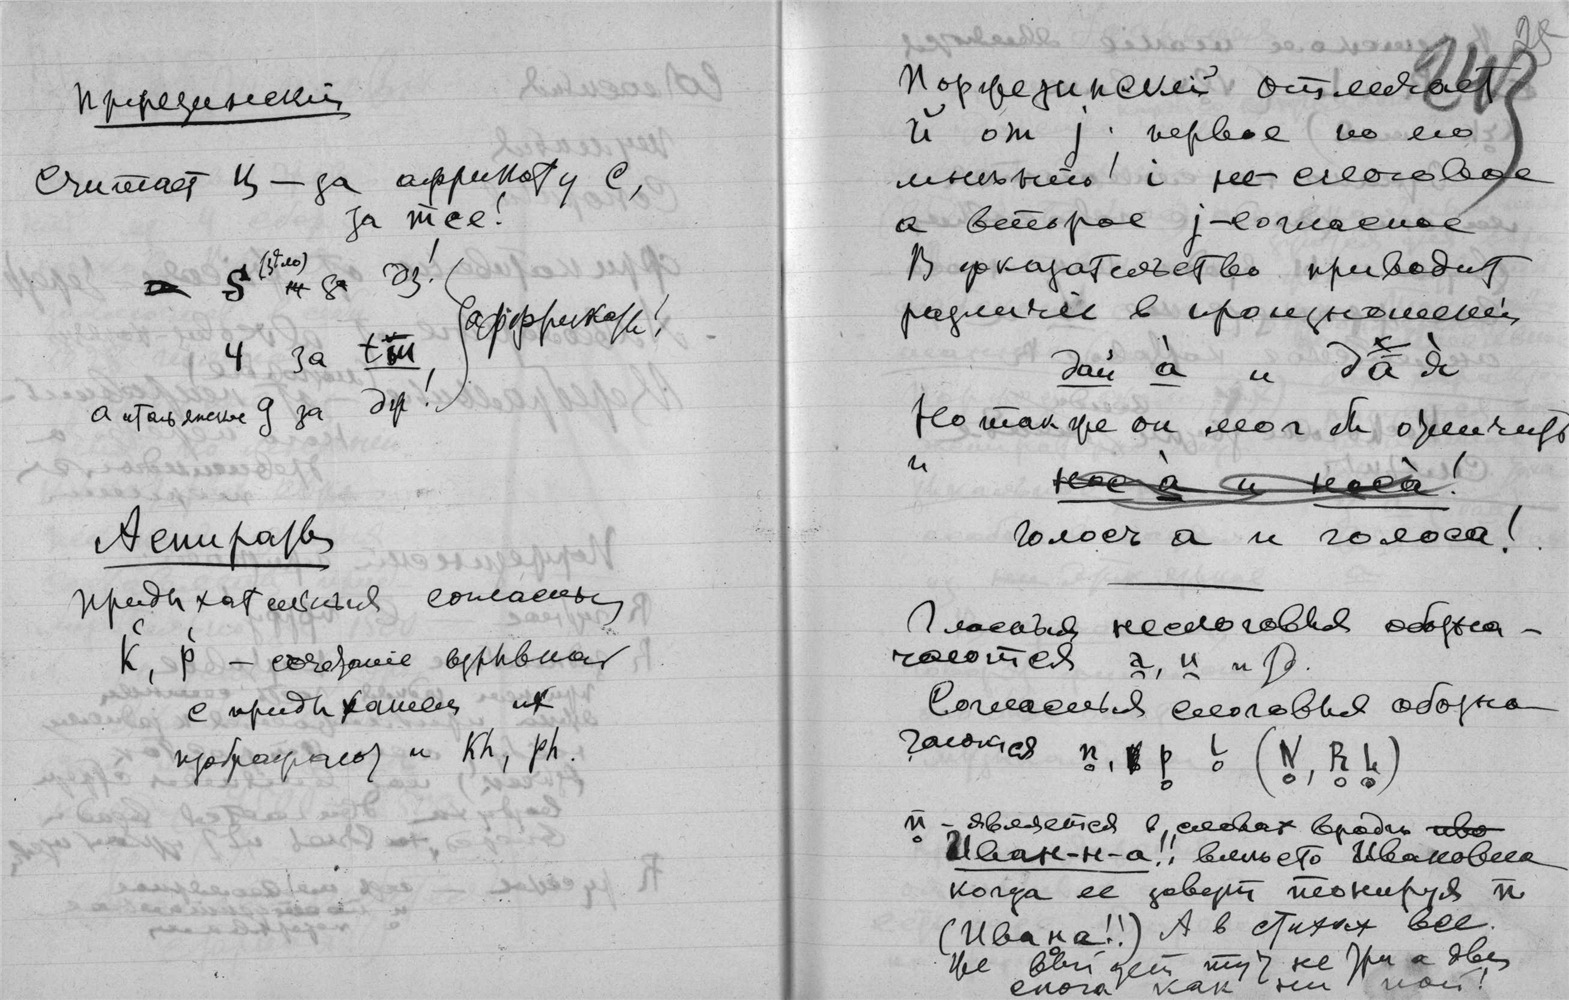 Поржезинский
считает ц — за аффрикату с,
за тсе!
S (зѣло) за дз!
ч за tш,
аффрикаты!
а итальянское g за дж!
Аспираты
придыхательныя согласныя
k̔, p̔ — сочетаніе взрывная
с придыханием их
изображают и kh, ph.
25
Поржезинский отличает
й от j; первое по его
мнѣнию! i не слоговое
а второе j-согласное
В доказательство приводит
различіе в произношении
дай à и дā я̀
Но также он мог бы отличить
и нос à и носà!
голосъ а и голоса!
Гласныя неслоговыя обозна-
чаются а̯, и̯ и р.
Согласныя слоговыя обозна
чаются n̥, р̥ l̥ (N̥, R̥ L̥)
n̥ — является в словах вродѣ иво
Иван-н-а!! вмѣсто Ивановна
когда ее зовут тонируя n
(Ивана!!) А в стихах все
же выйдет тут не три а два
слога как ни пой!